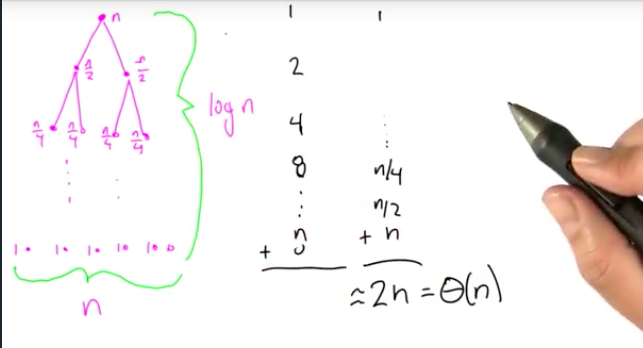 n
n/2 n/2
n/4 n/4 n/4 n/4
1 1 1 1 1 0
n
log n
1
2
4
8
⋮
n
+
1
⋮
n/4
n/2
+ n
≈2n = Θ(n)